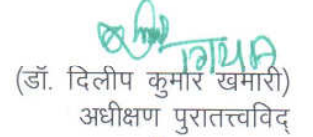 (डॉ. दिलीप कुमार खमारी)
अधीक्षण पुरातत्त्वविद्